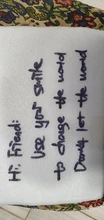 Hi. Friend:
Use your smile
to change the world
Don't let the world